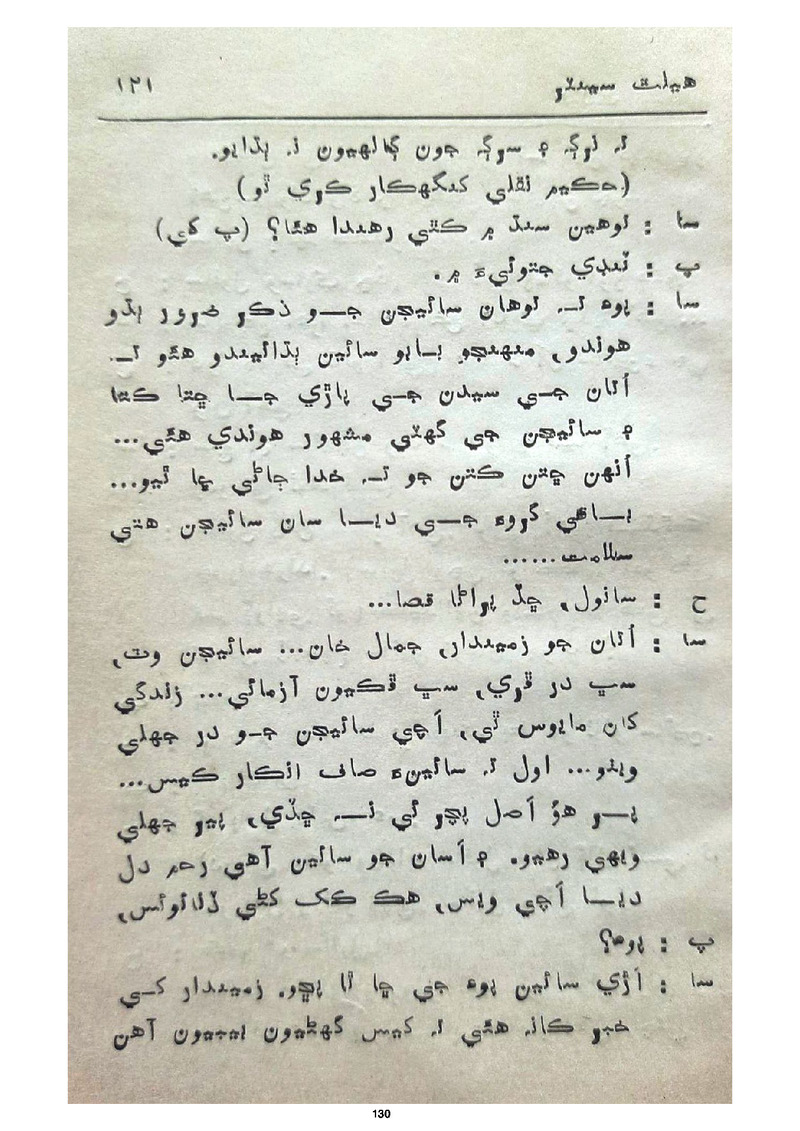 هيلٿ سينٽر ۱۲۱
تہ نرڳ ۽ سرڳ جون ڳالھيون نہ ٻڌايو.
(حڪيم نقلي کنگھڪار ڪري ٿو)
سا : توهين سنڌ ۾ ڪٿي رهندا هئا؟ (پ کي)
پ : ٽنڊي ڄتوئيءَ ۾.
سا : پوءِ تہ توهان سائيڄن جو ذڪر ضرور ٻڌو
هوندو، منھنجو بابو سائين ٻڌائيندو هئو تہ
اُتان جي سيدن جي پاڙي جا ڇتا ڪتا
۽ سائيڄن جي گھٽي مشھور هوندي هئي...
اُنهن ڇتن ڪتن جو تہ خدا ڄاڻي ڇا ٿيو...
باقي گروءَ جي ديا سان سائيڄن هتي
سلامت......
ح : سانول، ڇڏ پراڻا قصا...
سا : اُتان جو زميندار، جمال خان... سائيڄن وٽ،
سڀ در ڦري، سڀ ڦڪيون آزمائي... زندگي
کان مايوس ٿي، اَچي سائيڄن جو در جھلي
ويٺو... اول تہ سائينءَ صاف انڪار ڪيس...
پر هوُ اَصل پڇر ئي نہ ڇڏي، پير جھلي
ويهي رهيو. ۽ اَسان جو سائين آهي رحم دل
ديا اَچي ويس، هڪ ڪک کڻي ڏنائونس،
پ : پوءِ؟
سا : اَڙي سائين پوءِ جي ڇا ٿا پڇو. زميندار کي
خبر ڪانہ هئي تہ ڪيس گھڻيون ٻيبيون آهن
130